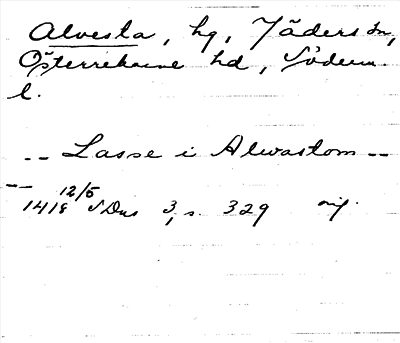 Alvesta, hg, Jäders sn,
Österrekarne hd, Söderm.
l.
-- Lasse i Alwastom --
--
12/5
1418 SDns 3, s. 329 orig.